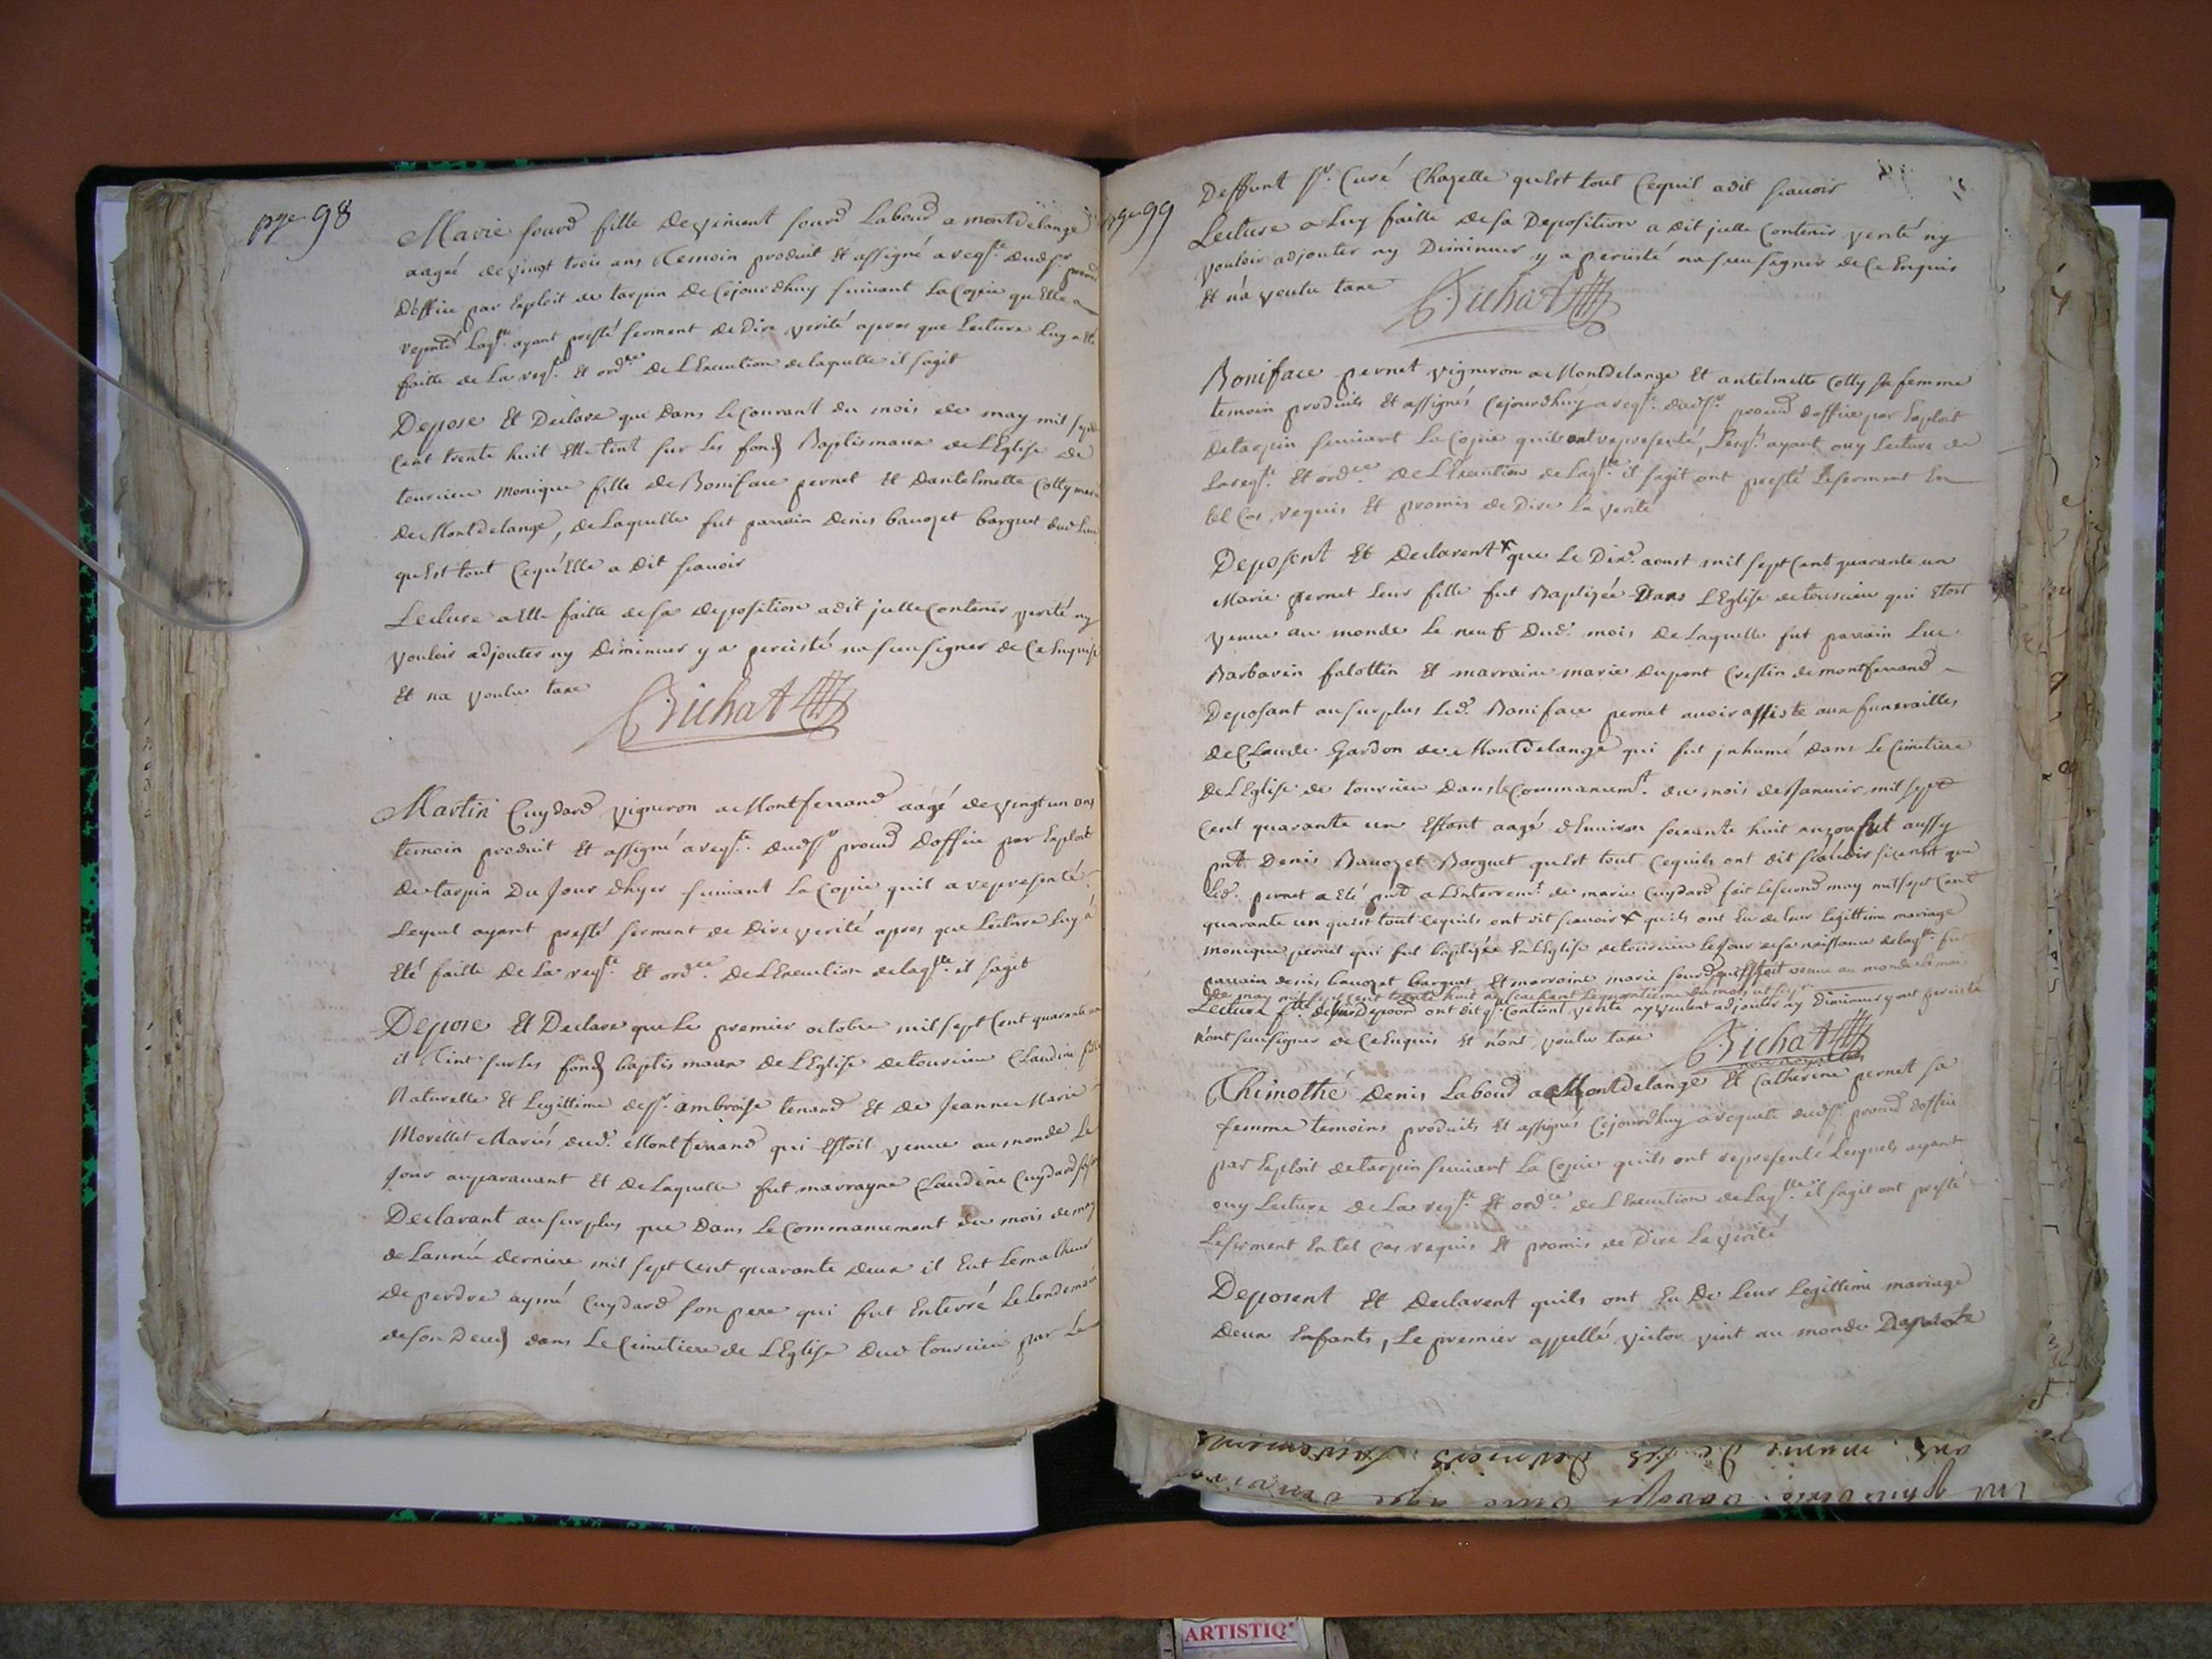 pge 98
Marie sourd fille de vincent sourd Laboud a montdelange
aagée de vingt trois ans temoin produit et assigné a reqte dudsr procur
D'office par Exploit de tarpin De cejourdhuy suivant La Copie qu'Elle a
represté Laqlle ayant presté serment de Dire verité apres que Lecture Luy a Eté
faitte de La reqte et ordce De L'Execution de laquelle il sagit
Depose Et Declare que Dans le Courant du mois de may mil sept
Cent trente huit Elle tint sur les fonds Baptismaux de L'Eglise de
tourcieu monique fille de Boniface pernet et Dantelmette Colly mariés
de Montdelange, de Laquelle fut parrain Denis bauozet barguet dud Lieu
qu'Est tout Cequ'Elle a Dit scavoir
Lecture a Elle faitte de sa deposition a dit jcelle Contenir verité ny
vouloir adjouter ny Diminuer y a percisté na sceu signer de Ce Enquise
Et na voulu taxe
Bichat
Martin Cuydard vigneron a Montferrand aagé de vingt un ans
temoin produit et assigné a reqte dudsr procur D'office par Exploit
de tarpin Du Jour d'hyer suivant La Copie quil a representé
Lequel ayant presté serment de Dire verité apres que Lecture Luy a
Eté faitte De La reqte Et ordce De L'Execution delaqlle il sagit
Depose Et Declare que Le premier octobre mil sept Cent quarante un
il tint sur les fonds baptismaux de L'Eglise de tourcieu Claudine fille
Naturelle et Legittime de sr ambroise tenand Et de Jeanne Marie
Morellet Mariés dud. Montferrand qui Estoit venue au monde Le
Jour auparauant Et de Laquelle fut marrayne Claudine Cuydard sa
Declarant au surplus que Dans Le Commancement du mois de may
de L'année derniere mil sept cent quarante deux il Eut Le malheur
de perdre aymé Cuydard son pere qui fut Enterré Le Lendemain
de son Deces dans Le Cimetiere de L'Eglise dud tourcieu par Le
pge 99
Deffunt sr. Curé Chazelle qu'Est tout Cequil a dit scauoir
Lecture a Luy faitte de sa Deposition a Dit jcelle Contenir verité ny
vouloir adjouter ny Diminuer y a percisté na sceu signer de Ce Enquis
Et n'a voulu taxe
Bichat
Boniface pernet vigneron a Montdelange Et antelmette Colly sa femme
temoin produits Et assignés Cejourdhuy a reqte dudsr procur d'office par Exploit
de tarpin suivant La Copie quils ont representé, Lesqls ayant ouy Lecture de
La reqte Et ordce De L'Execution de Laqlle il sagit ont presté Le serment En
tel Cas requis Et promis de Dire La verité
Deposent Et Declarent x que Le Dixe aoust mil sept Cent quarante un
Marie pernet Leur fille fut Baptizée Dans L'Eglise de tourcieu qui Etoit
venue au monde Le neuf Dud. mois De Laquelle fut parrain Luc
Barbarin falottin Et marraine marie Dupont Crestin de montferrand
Deposant au surplus Led. Boniface pernet auoir assisté aux funerailles
de Claude Gardon de Montdelange qui fut jnhumé dans Le Cimetiere
De L'Eglise de tourcieu dans le Commancemt. du mois de Januier mil sept
Cent quarante un Estant aagé d'Enuiron soixante huit ans ou fut aussy
pnt Denis Bauozet Barguet qu'Est tout Cequils ont dit scauoir si ce n'est que
Led. pernet a Eté pnt a L'Enterremt de marie Cuydard fait Le second may mil sept Cent
quarante un qu'est tout Cequils ont dit scauoir x quils ont Eu de leur Legittime mariage
monique pernet qui fut baptizée En L'Eglise de tourcieu Le Jour de sa naissance de laqlle fut
parrain denis bauozet barguet Et marraine marie sourd qu'Estoit venue au monde Le mois
de may mil sept cent trente huit
Lecture ont dit qe. Contient verité ny veulent adjouter ny Diminuer y ont percisté
n'ont sceu signer de Ce Enquis Et n'ont voulu taxe
Bichat
Thimothé Denis Laboud a Montdelange Et Catherine pernet sa
femme temoins produits Et assignes Cejourdhuy a requete dudsr procur d'office
par Exploit de tarpin suivant La Copie quils ont representé Lesquels ayant
ouy Lecture de La reqte Et ordce de L'Execution de Laqlle il sagit ont presté
Le serment En tel Cas requis Et promis de Dire La verité
Deposent Et Declarent quils ont Eu De Leur Legittime mariage
deux Enfants, Le premier appellé victor vint au monde
ARTISTIQ